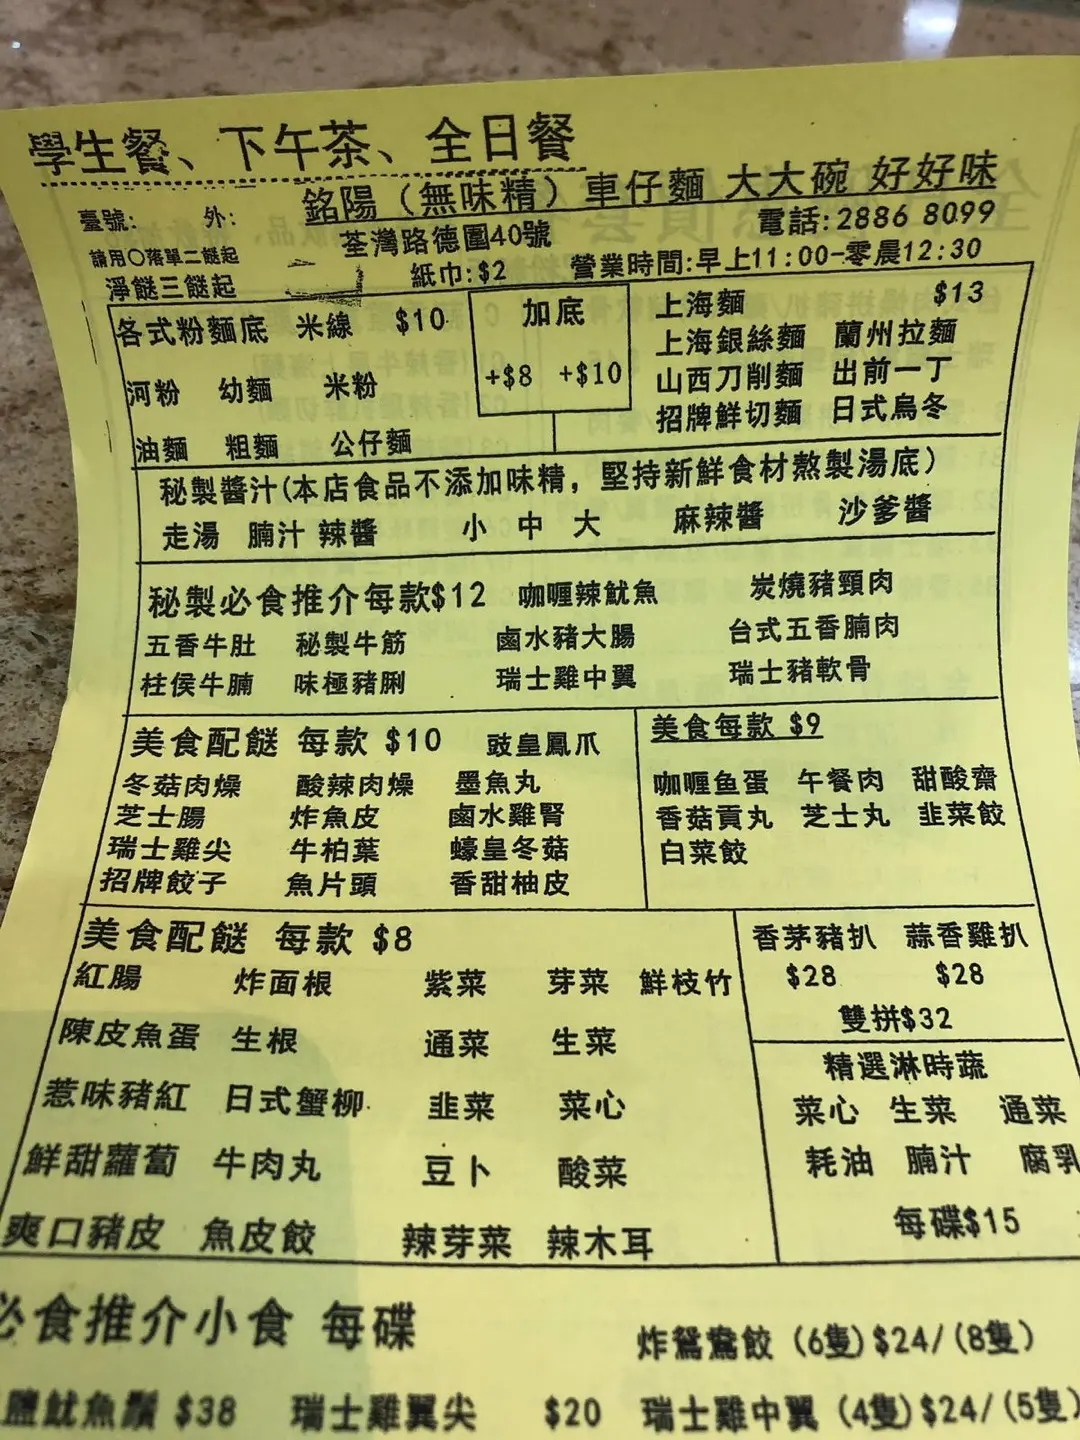 學生餐、下午茶、全日餐
銘陽（無味精）車仔麵 大大碗 好好味
臺號: 外:
荃灣路德圍40號 電話:2886 8099
請用○落單二餸起
淨餸三餸起 紙巾:$2 營業時間:早上11:00-零晨12:30
各式粉麵底 米線 $10
河粉 幼麵 米粉
油麵 粗麵 公仔麵
加底
+$8 +$10
上海麵 $13
上海銀絲麵 蘭州拉麵
山西刀削麵 出前一丁
招牌鮮切麵 日式烏冬
秘製醬汁(本店食品不添加味精，堅持新鮮食材熬製湯底)
走湯 腩汁 辣醬 小 中 大 麻辣醬 沙爹醬
秘製必食推介每款$12 咖喱辣魷魚 炭燒豬頸肉
五香牛肚 秘製牛筋 鹵水豬大腸 台式五香腩肉
柱侯牛腩 味極豬脷 瑞士雞中翼 瑞士豬軟骨
美食配餸 每款 $10 豉皇鳳爪
冬菇肉燥 酸辣肉燥 墨魚丸
芝士腸 炸魚皮 鹵水雞腎
瑞士雞尖 牛柏葉 蠔皇冬菇
招牌餃子 魚片頭 香甜柚皮
美食每款 $9
咖喱鱼蛋 午餐肉 甜酸齋
香菇貢丸 芝士丸 韭菜餃
白菜餃
美食配餸 每款 $8
紅腸 炸面根 紫菜 芽菜 鮮枝竹
陳皮魚蛋 生根 通菜 生菜
惹味豬紅 日式蟹柳 韭菜 菜心
鮮甜蘿蔔 牛肉丸 豆卜 酸菜
爽口豬皮 魚皮餃 辣芽菜 辣木耳
香茅豬扒 蒜香雞扒
$28 $28
雙拼$32
精選淋時蔬
菜心 生菜 通菜
耗油 腩汁 腐乳
每碟$15
必食推介小食 每碟
炸鴛鴦餃 (6隻)$24/(8隻)
鹽魷魚鬚 $38 瑞士雞翼尖 $20 瑞士雞中翼 (4隻)$24/(5隻)